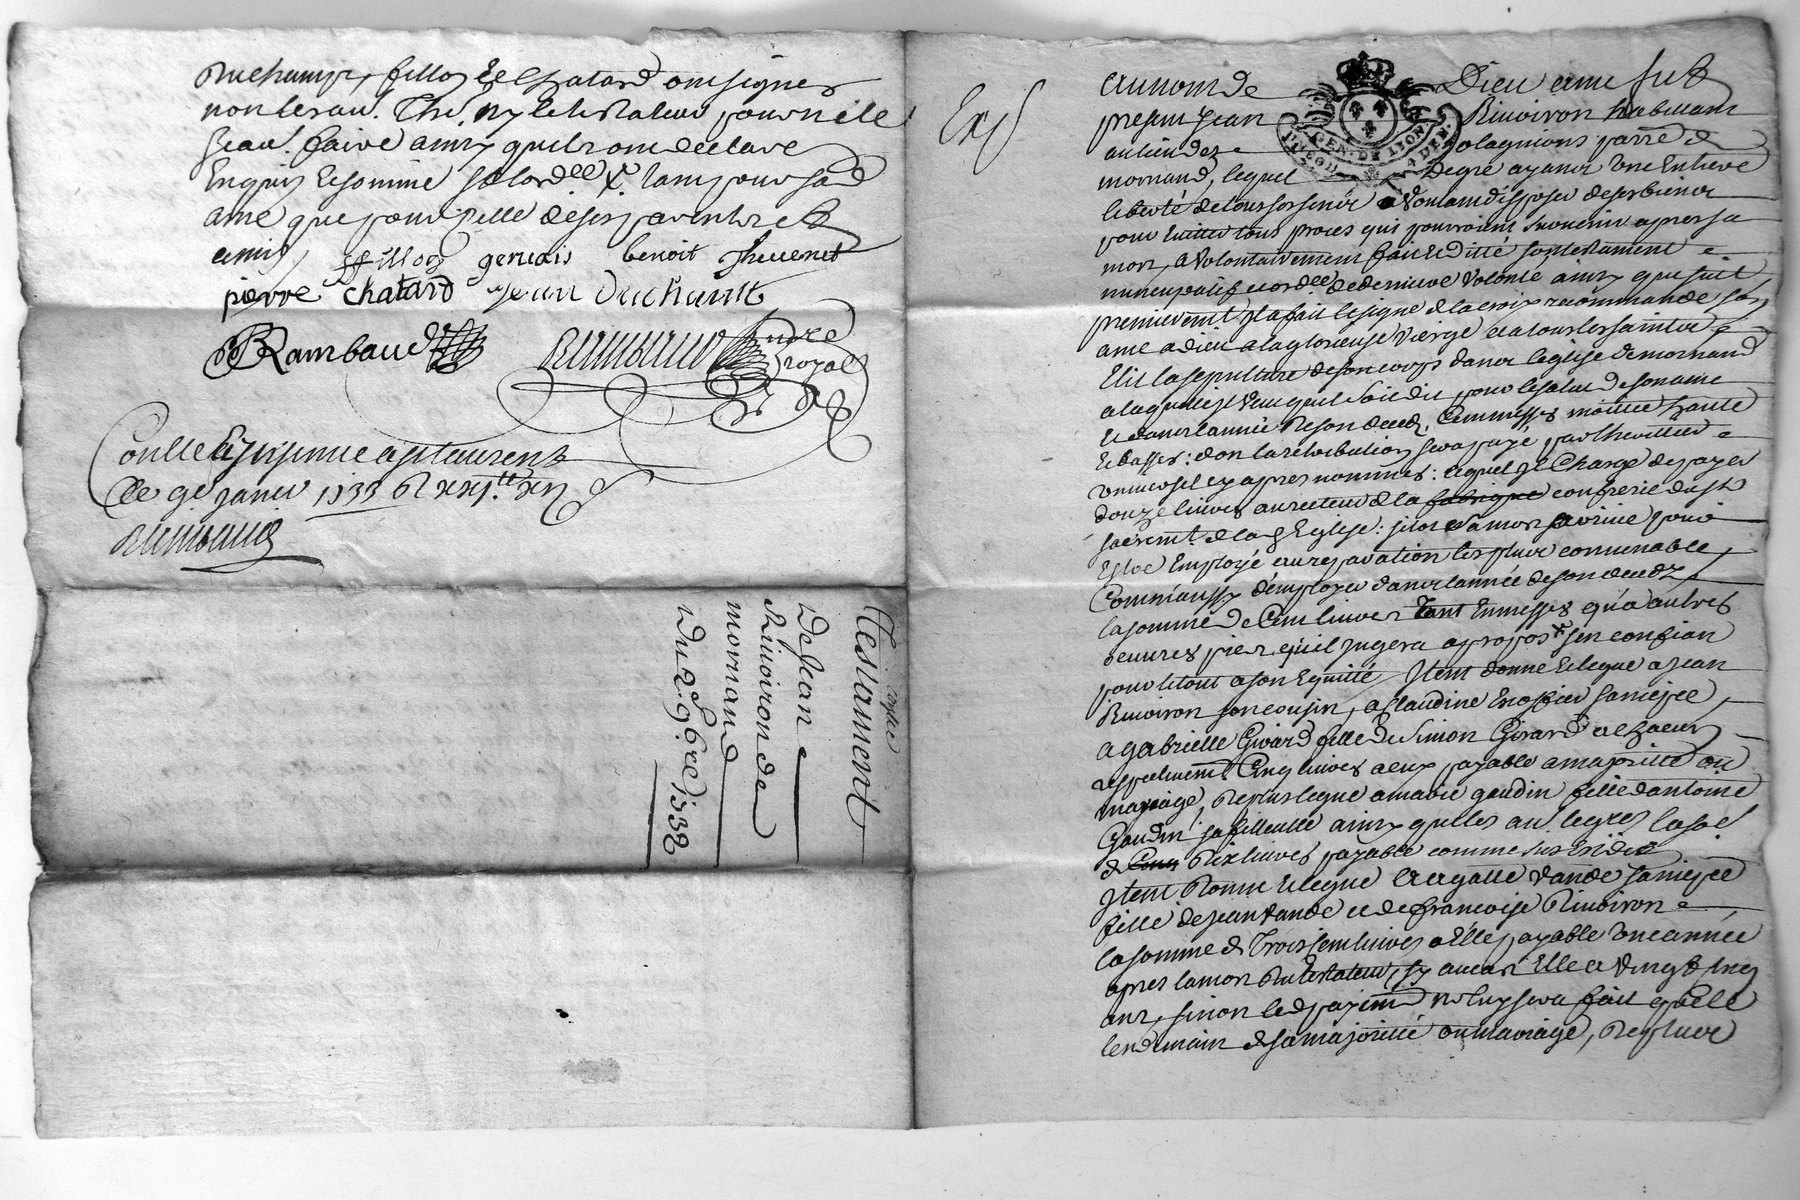 Duchamps, fillon et Chatard ont signes
non lesaut. Thé. ny le testateur pour ne le
sçau. faire ainsy quils ont declaré
Enquis et sommé
ame que pour celle de ses parents et
amis, ffillon gervais benoit thevenet
pierre chatard Jean Duchamp
Rambaud
Rimbaud nore
royal
Conlle
le 9e janer 1733
Rimbaud
coppie
Testament
de Jean
Rivoiron de
mornand
Du 2e 9bre 1732
Exp
au nom de Dieu a me fut
present Jean Rivoiron habitant
au lieu des olagnions parre de
mornand, lequel de gré ayant une Entiere
liberté de tous ses sens a voulant disposer de ses biens
pour Eviter tous proces qui pourroient survenir apres sa
mort, a volontairement fait et ditté son testament
nuncupatif et ordee. de derniere volonté ainsy que suit
premierement Il a fait le signe de la croix recommandé son
ame a dieu a la glorieuse vierge et a tous les saints
Elit la sepulture de son corps dans l'eglise de mornand
a laquelle il veut quil soit dit pour le salut de son ame
et dans l'année de son deceds, Cent messes moitié haute
et basses: dont la retribution sera payé par lheritier
universel cy apres nommés: lequel Il Charge de payer
douze livres au recteur de la fabrique confrerie du st
sacremt. de lad Eglise: pour
Estre Employé aux reparation les plus convenable,
Comme aussy d'employer dans l'année de son deceds
la somme de Cent livres tant En messes qu'a autres
oeuvres pies quil jugera a propos sen confiant
pour le tout a son Equitté Item donne et legue a Jean
Rivoiron son cousin, a Claudine sa niepce,
a gabrielle Girard fille de Simon Girard a chacun
respectivemt Cinq livres a eux payable a majorité ou
mariage, de plus legue a marie gaudin fille d'antoine
Gaudin sa filleulle ainsy quelles au. legues la so.e
de Cinq dix livres payable comme sus Est dit
Item donne et legue a agatte vande sa niepce
fille de Jean vande et de francoise Rivoiron
la somme de Trois cent livres a Elle payable une année
apres la mort du testateur, sy au cas Elle a vingt cinq
ans, sinon led payemt. ne luy sera fait quelle
lendemain de sa majorité ou mariage, de plus